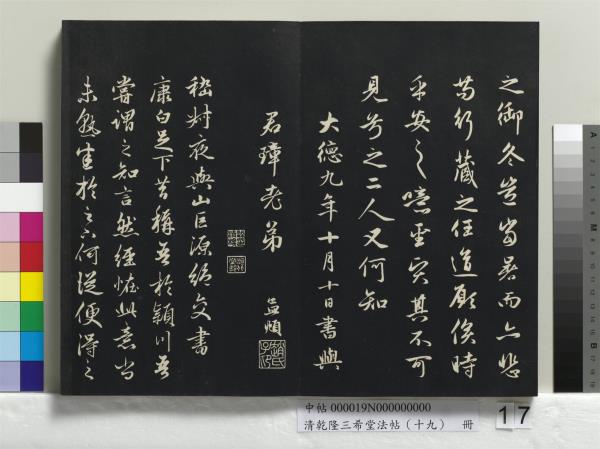 之御冬豈當暑而亡悲
苟行藏之任道願俟時
乎安之噫聖其不可
見兮之二人又何知
大德九年十月十日書與
君璋老弟
孟頫
趙氏子昂
嵇叔夜與山巨源絕交書
康白足下昔稱吾於潁川吾
嘗謂之知言然經怪此意尚
未熟悉於足下何從便得之
中帖 000019N000000000
清乾隆三希堂法帖（十九） 冊
17